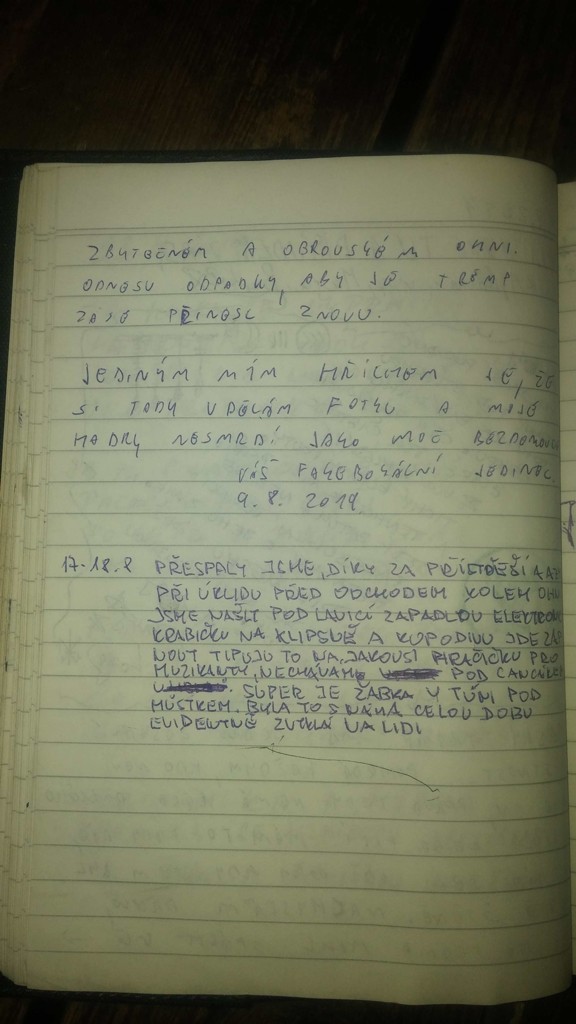 ZBYTEČNÉM A OBROVSKÉM OHNI.
ODNESU ODPADKY, ABY JE TRAMP
ZASE PŘINESL ZNOVU.
JEDINÝM MÝM HŘÍCHEM JE, ŽE
SI TADY UDĚLÁM FOTKU A MOJE
HADRY NESMRDÍ JAKO MOE
VÁŠ FACEBOKÁLNÍ JEDINEC.
9. 8. 2019
17-18.8 PŘESPALY JSME, DÍKY ZA PŘÍSTŘEŠÍ A
PŘI ÚKLIDU PŘED ODCHODEM KOLEM
JSME NAŠLI POD LAVICÍ ZAPADLOU
KRABIČKU NA KLIPSNĚ A KUPODIVU JDE
NOUT TIPUJU TO NA JAKOUSI PRO
MUZIKANTY, NECHÁVÁME POD
SUPER JE ŽÁBKA V TŮNI POD
MŮSTKEM. BYLA TO S NÁMA CELOU DOBU
EVIDENTNĚ ZVYKLÁ NA LIDI